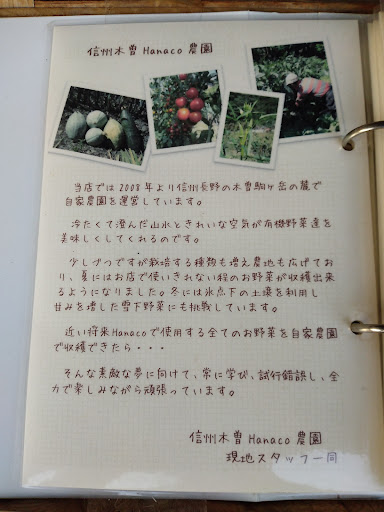 信州木曽 Hanaco 農園
当店では2008年より信州長野の木曽駒ヶ岳の麓で
自家農園を運営しています。
冷たくて澄んだ山水ときれいな空気が有機野菜達を
美味しくしてくれるのです。
少しづつですが栽培する種類も増え農地も広げてお
り、夏にはお店で使いきれない程のお野菜が収穫出来
るようになりました。冬には氷点下の土壌を利用し
甘みを増した雪下野菜にも挑戦しています。
近い将来Hanacoで使用する全てのお野菜を自家農園
で収穫できたら・・・
そんな素敵な夢に向けて、常に学び、試行錯誤し、全
力で楽しみながら頑張っています。
信州木曽 Hanaco 農園
現地スタッフ一同